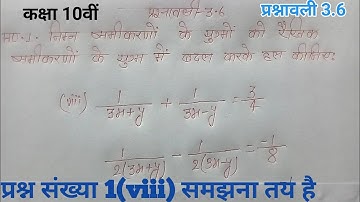 कक्षा 10वीं
प्रश्नावली-3.6
प्रश्नावली 3.6
प्र०-1. निम्न समीकरणों के युग्मों को रैखिक
समीकरणों के युग्म में बदल करके हल कीजिए
(viii) 1/(3x+y) + 1/(3x-y) = 3/4
1/2(3x+y) - 1/2(3x-y) = -1/8
प्रश्न संख्या 1(viii) समझना तय है